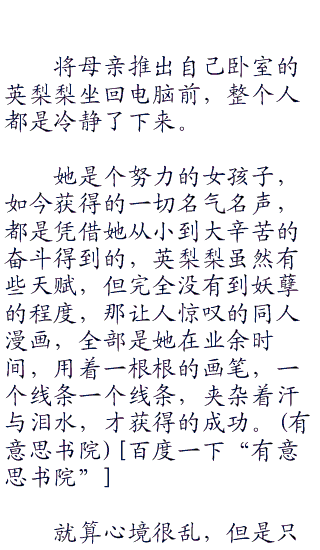 将母亲推出自己卧室的
英梨梨坐回电脑前，整个人
都是冷静了下来。
她是个努力的女孩子，
如今获得的一切名气名声，
都是凭借她从小到大辛苦的
奋斗得到的，英梨梨虽然有
些天赋，但完全没有到妖孽
的程度，那让人惊叹的同人
漫画，全部是她在业余时
间，用着一根根的画笔，一
个线条一个线条，夹杂着汗
与泪水，才获得的成功。(有
意思书院)[百度一下“有意
思书院”]
就算心境很乱，但是只